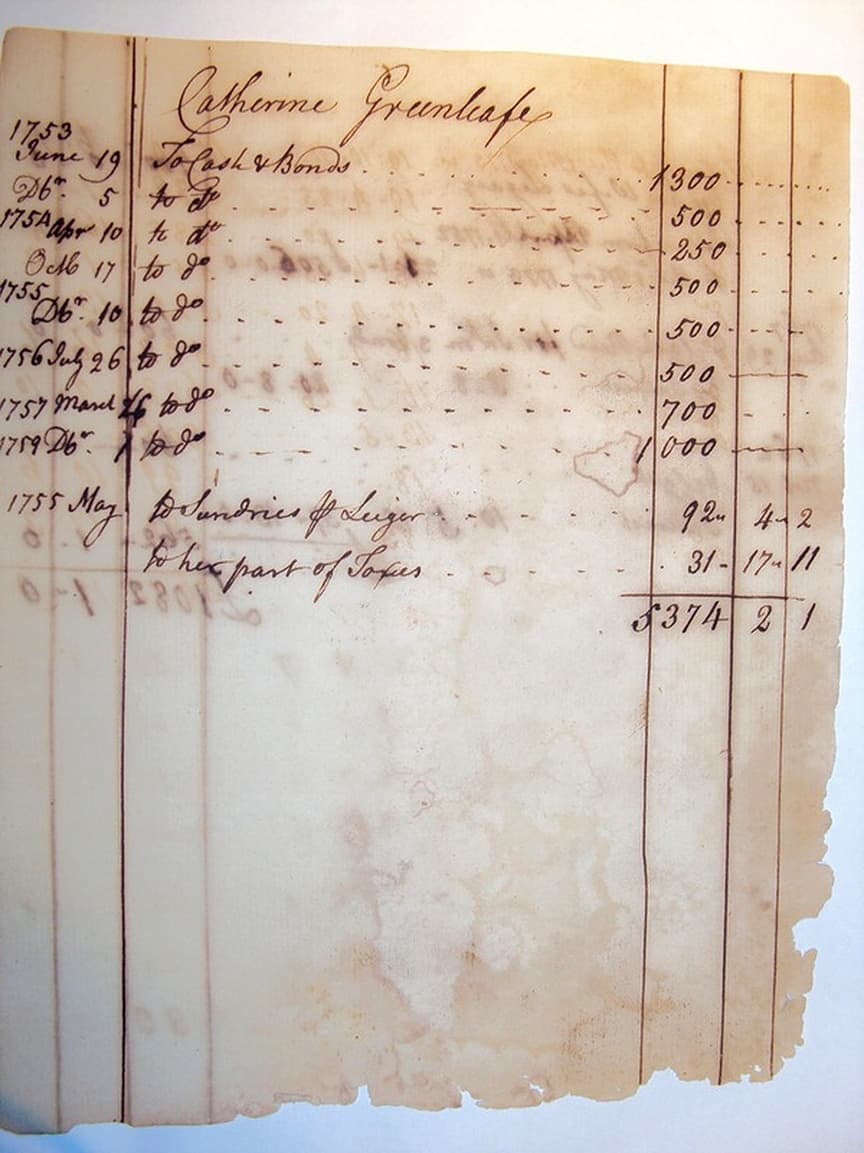 Catherine Greenleafe
1753
June 19 To Cash & Bonds 1300
Dbr. 5 to do 500
1754 Apr 10 to do 250
Octb 17 to do 500
1755
Dbr. 10 to do 500
1756 July 26 to do 500
1757 March to do 700
1759 Dbr. 1 to do 1000
1755 May to Sundries Leiger 92 4 2
to her part of Taxes 31 17 11
5374 2 1
£1082 1-0